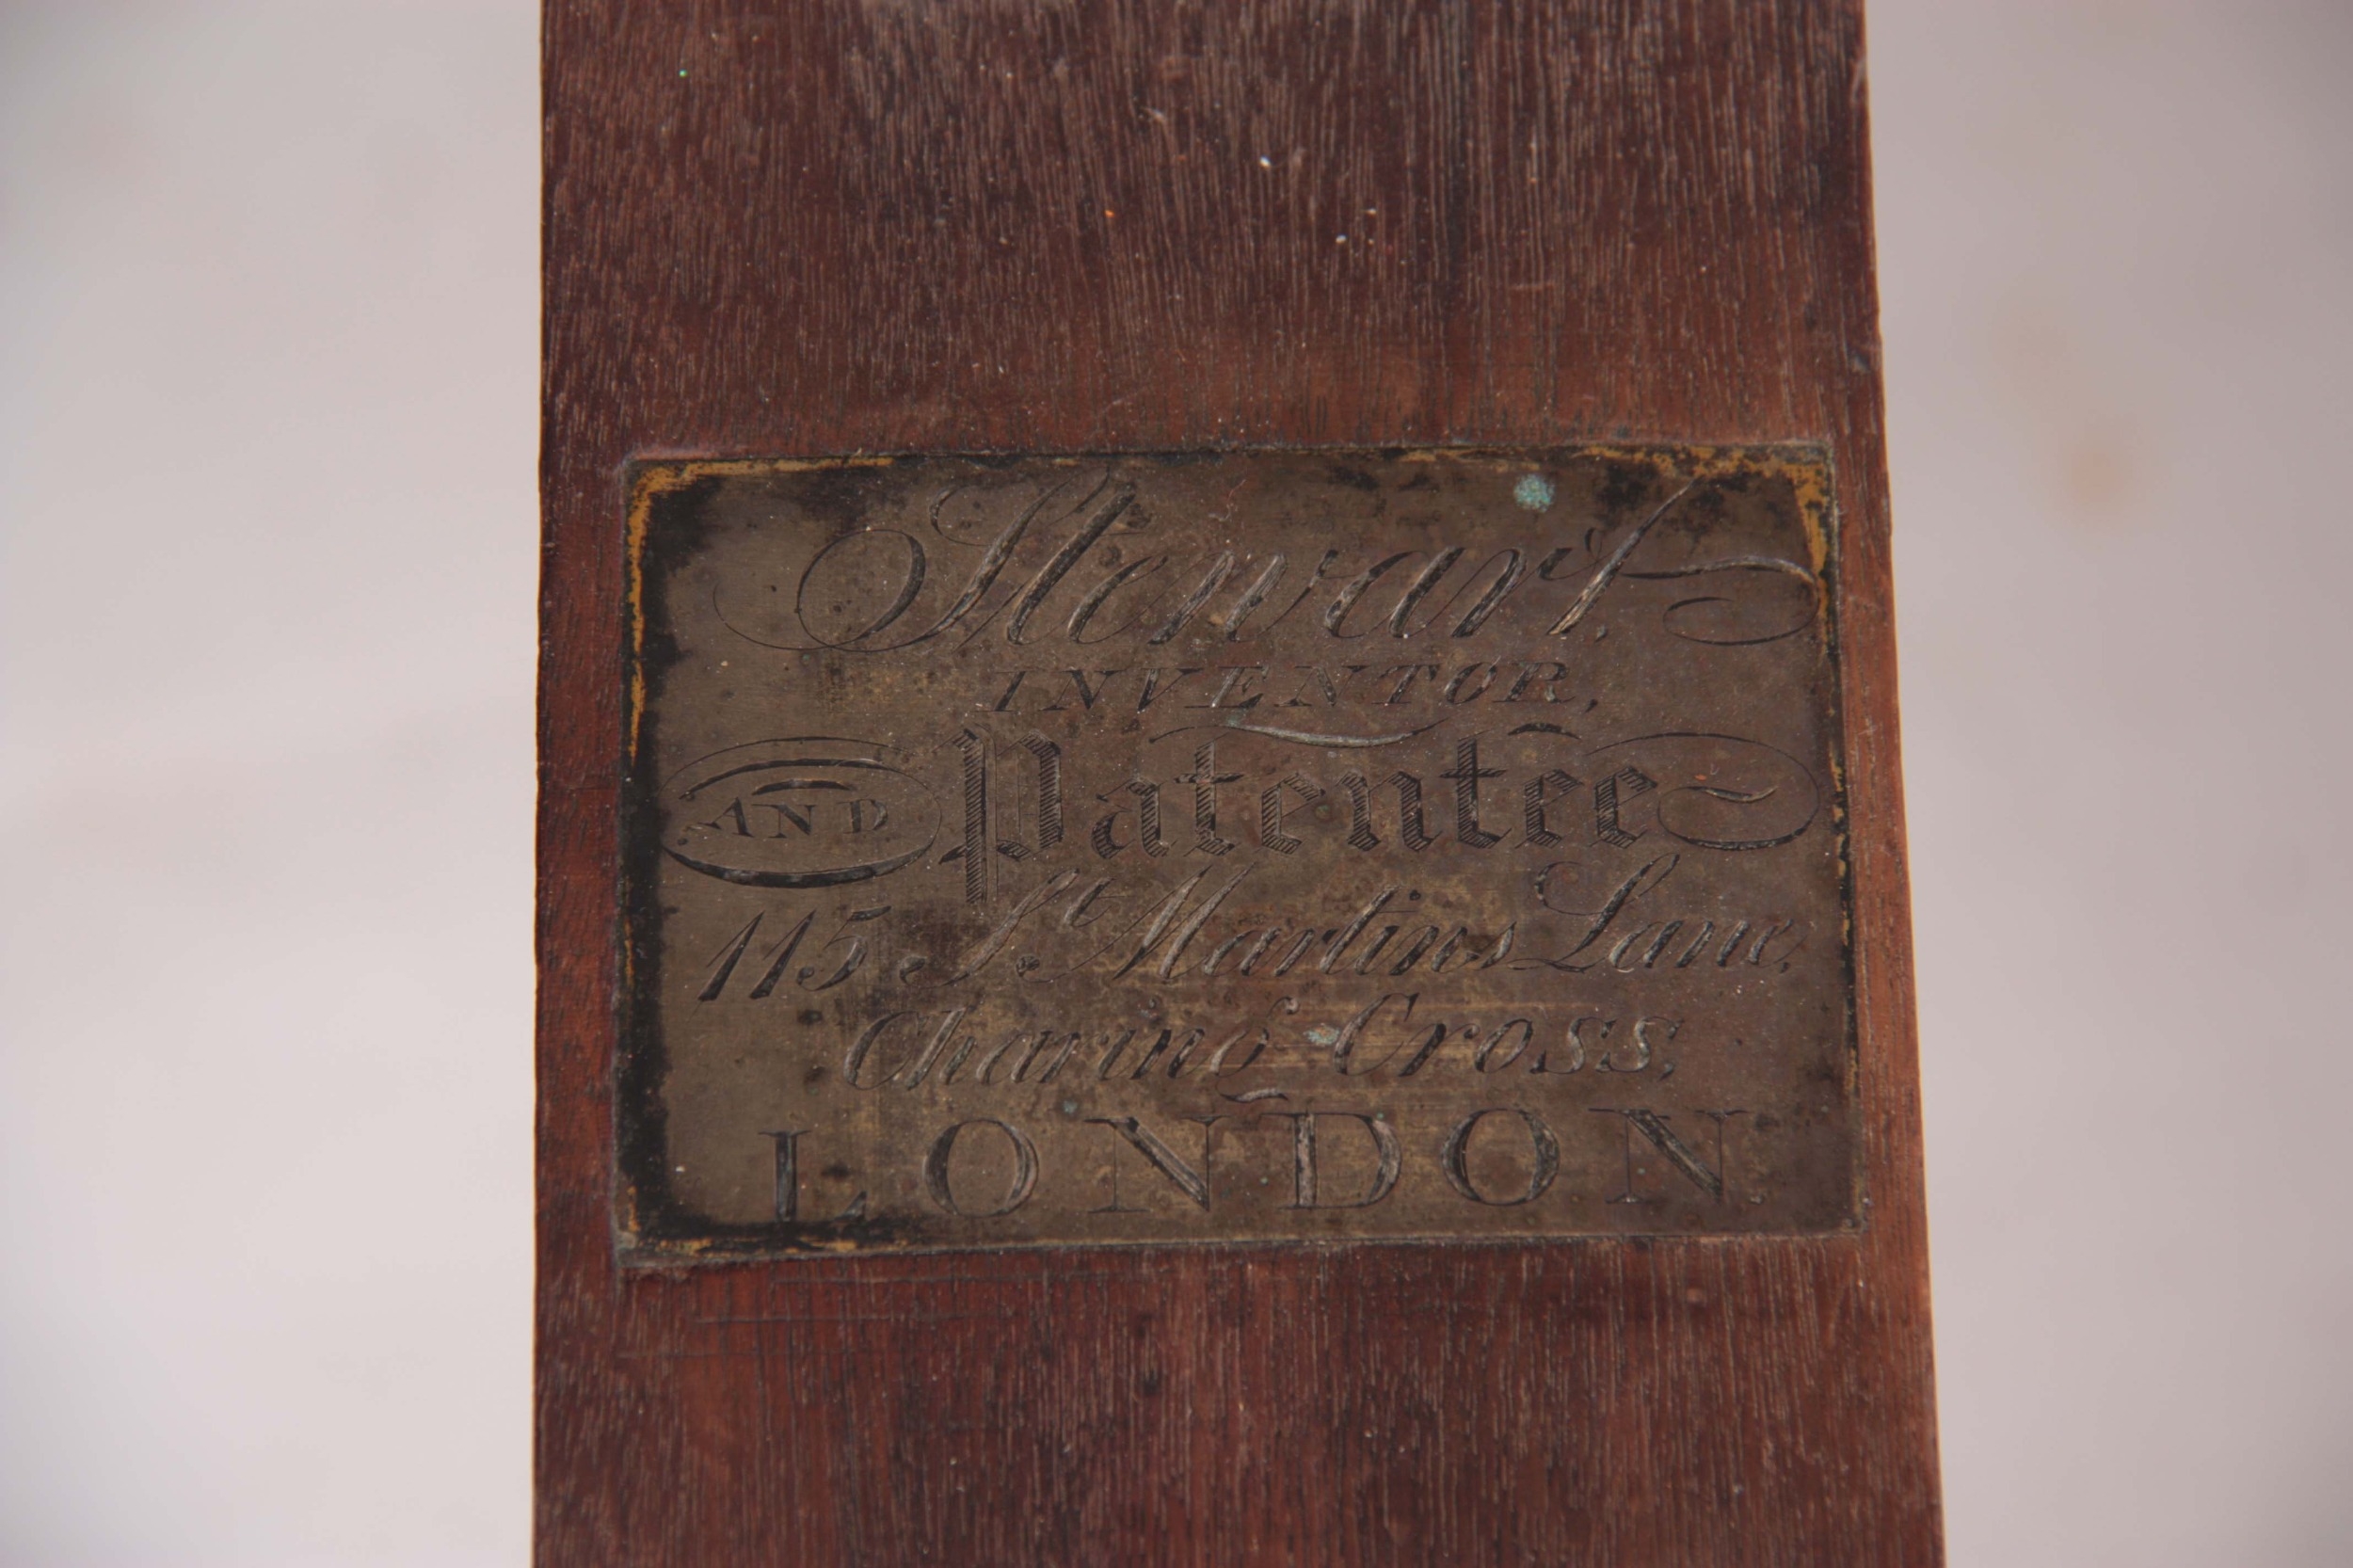 Stewart,
INVENTOR,
AND Patentee
115 St Martins Lane,
Charing Cross,
LONDON